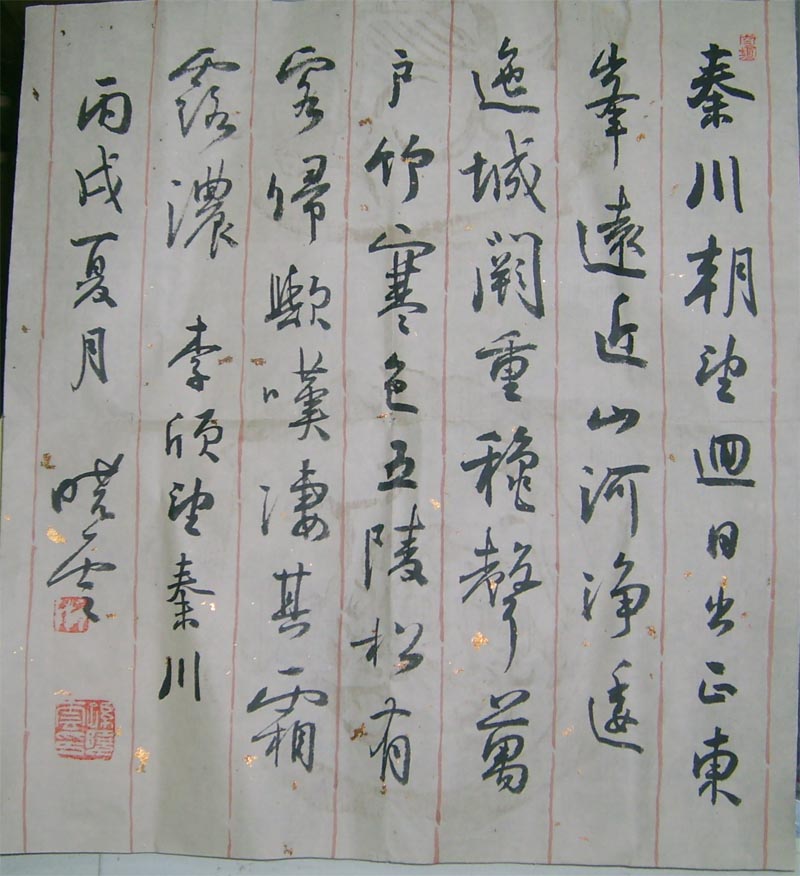 秦川朝望迴日出正東
峯遠近山河淨逶
迤城闕重穐聲萬
户竹寒色五陵松有
客歸歟嘆凄其霜
露濃 李頎望秦川
丙戌夏月 曉雲